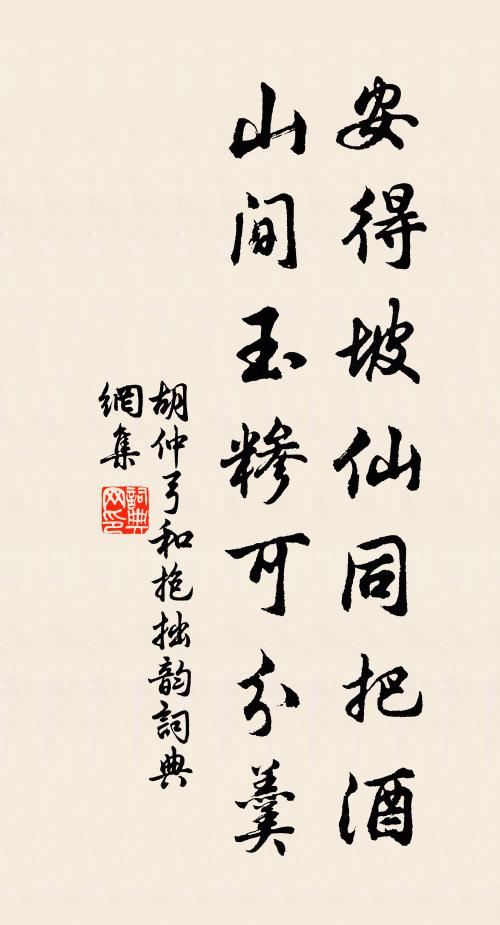 安得坡仙同把酒
山间玉糝可分羹
胡仲弓和抱拙韵詞典
網集
詞典网印